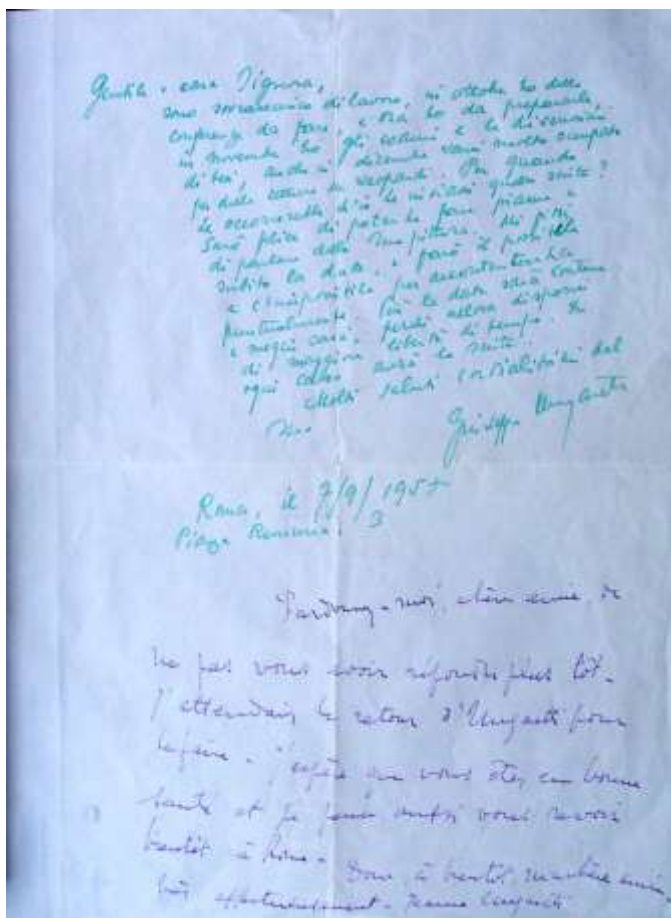 Gentile e cara Signora,
sono sovraccarico di lavoro, in ottobre ho delle
conferenze da fare, e ora ho da prepararle,
in novembre ho gli esami e le discussioni
di tesi, anche in dicembre sarò molto occupato
per delle
Le occorrerebbe ch'io le inviassi quelle unite?
Sarò felice di poterle fare piacere e
di parlare della Sua pittura. Mi dia
subito la data, e farò il possibile
e l'impossibile per accontentarla
puntualmente. Più la data sarà lontana
e meglio sarà, perché allora disporrò
di maggiore libertà di tempo. In
ogni caso avrà le
Molti saluti cordialissimi dal
Suo
Giuseppe Ungaretti
Roma, il 7/9/1957
Piazza Remuria, 3
Pardonnez-moi, chère amie, de
ne pas vous avoir répondu plus tôt.
J'attendais le retour d'Ungaretti pour
le faire. J'espère que vous êtes en bonne
santé et je pense aussi vous revoir
bientôt à Rome. Donc à bientôt, ma chère amie
très affectueusement. Jeanne Ungaretti